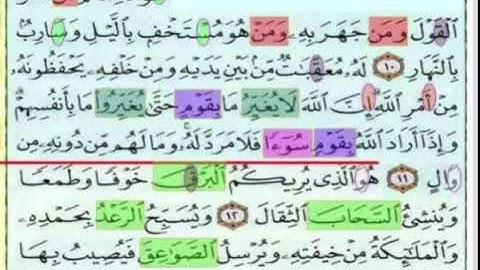 ٱلْقَوْلَ وَمَن جَهَرَ بِهِۦ وَمَنْ هُوَ مُسْتَخْفٍۭ بِٱلَّيْلِ وَسَارِبٌۢ
بِٱلنَّهَارِ ١٠ لَهُۥ مُعَقِّبَٰتٌ مِّنۢ بَيْنِ يَدَيْهِ وَمِنْ خَلْفِهِۦ يَحْفَظُونَهُۥ
مِنْ أَمْرِ ٱللَّهِ إِنَّ ٱللَّهَ لَا يُغَيِّرُ مَا بِقَوْمٍ حَتَّىٰ يُغَيِّرُوا۟ مَا بِأَنفُسِهِمْ
وَإِذَآ أَرَادَ ٱللَّهُ بِقَوْمٍ سُوٓءًا فَلَا مَرَدَّ لَهُۥ وَمَا لَهُم مِّن دُونِهِۦ مِن
وَالٍ ١١ هُوَ ٱلَّذِى يُرِيكُمُ ٱلْبَرْقَ خَوْفًا وَطَمَعًا
وَيُنشِئُ ٱلسَّحَابَ ٱلثِّقَالَ ١٢ وَيُسَبِّحُ ٱلرَّعْدُ بِحَمْدِهِۦ
وَٱلْمَلَٰٓئِكَةُ مِنْ خِيفَتِهِۦ وَيُرْسِلُ ٱلصَّوَٰعِقَ فَيُصِيبُ بِهَا